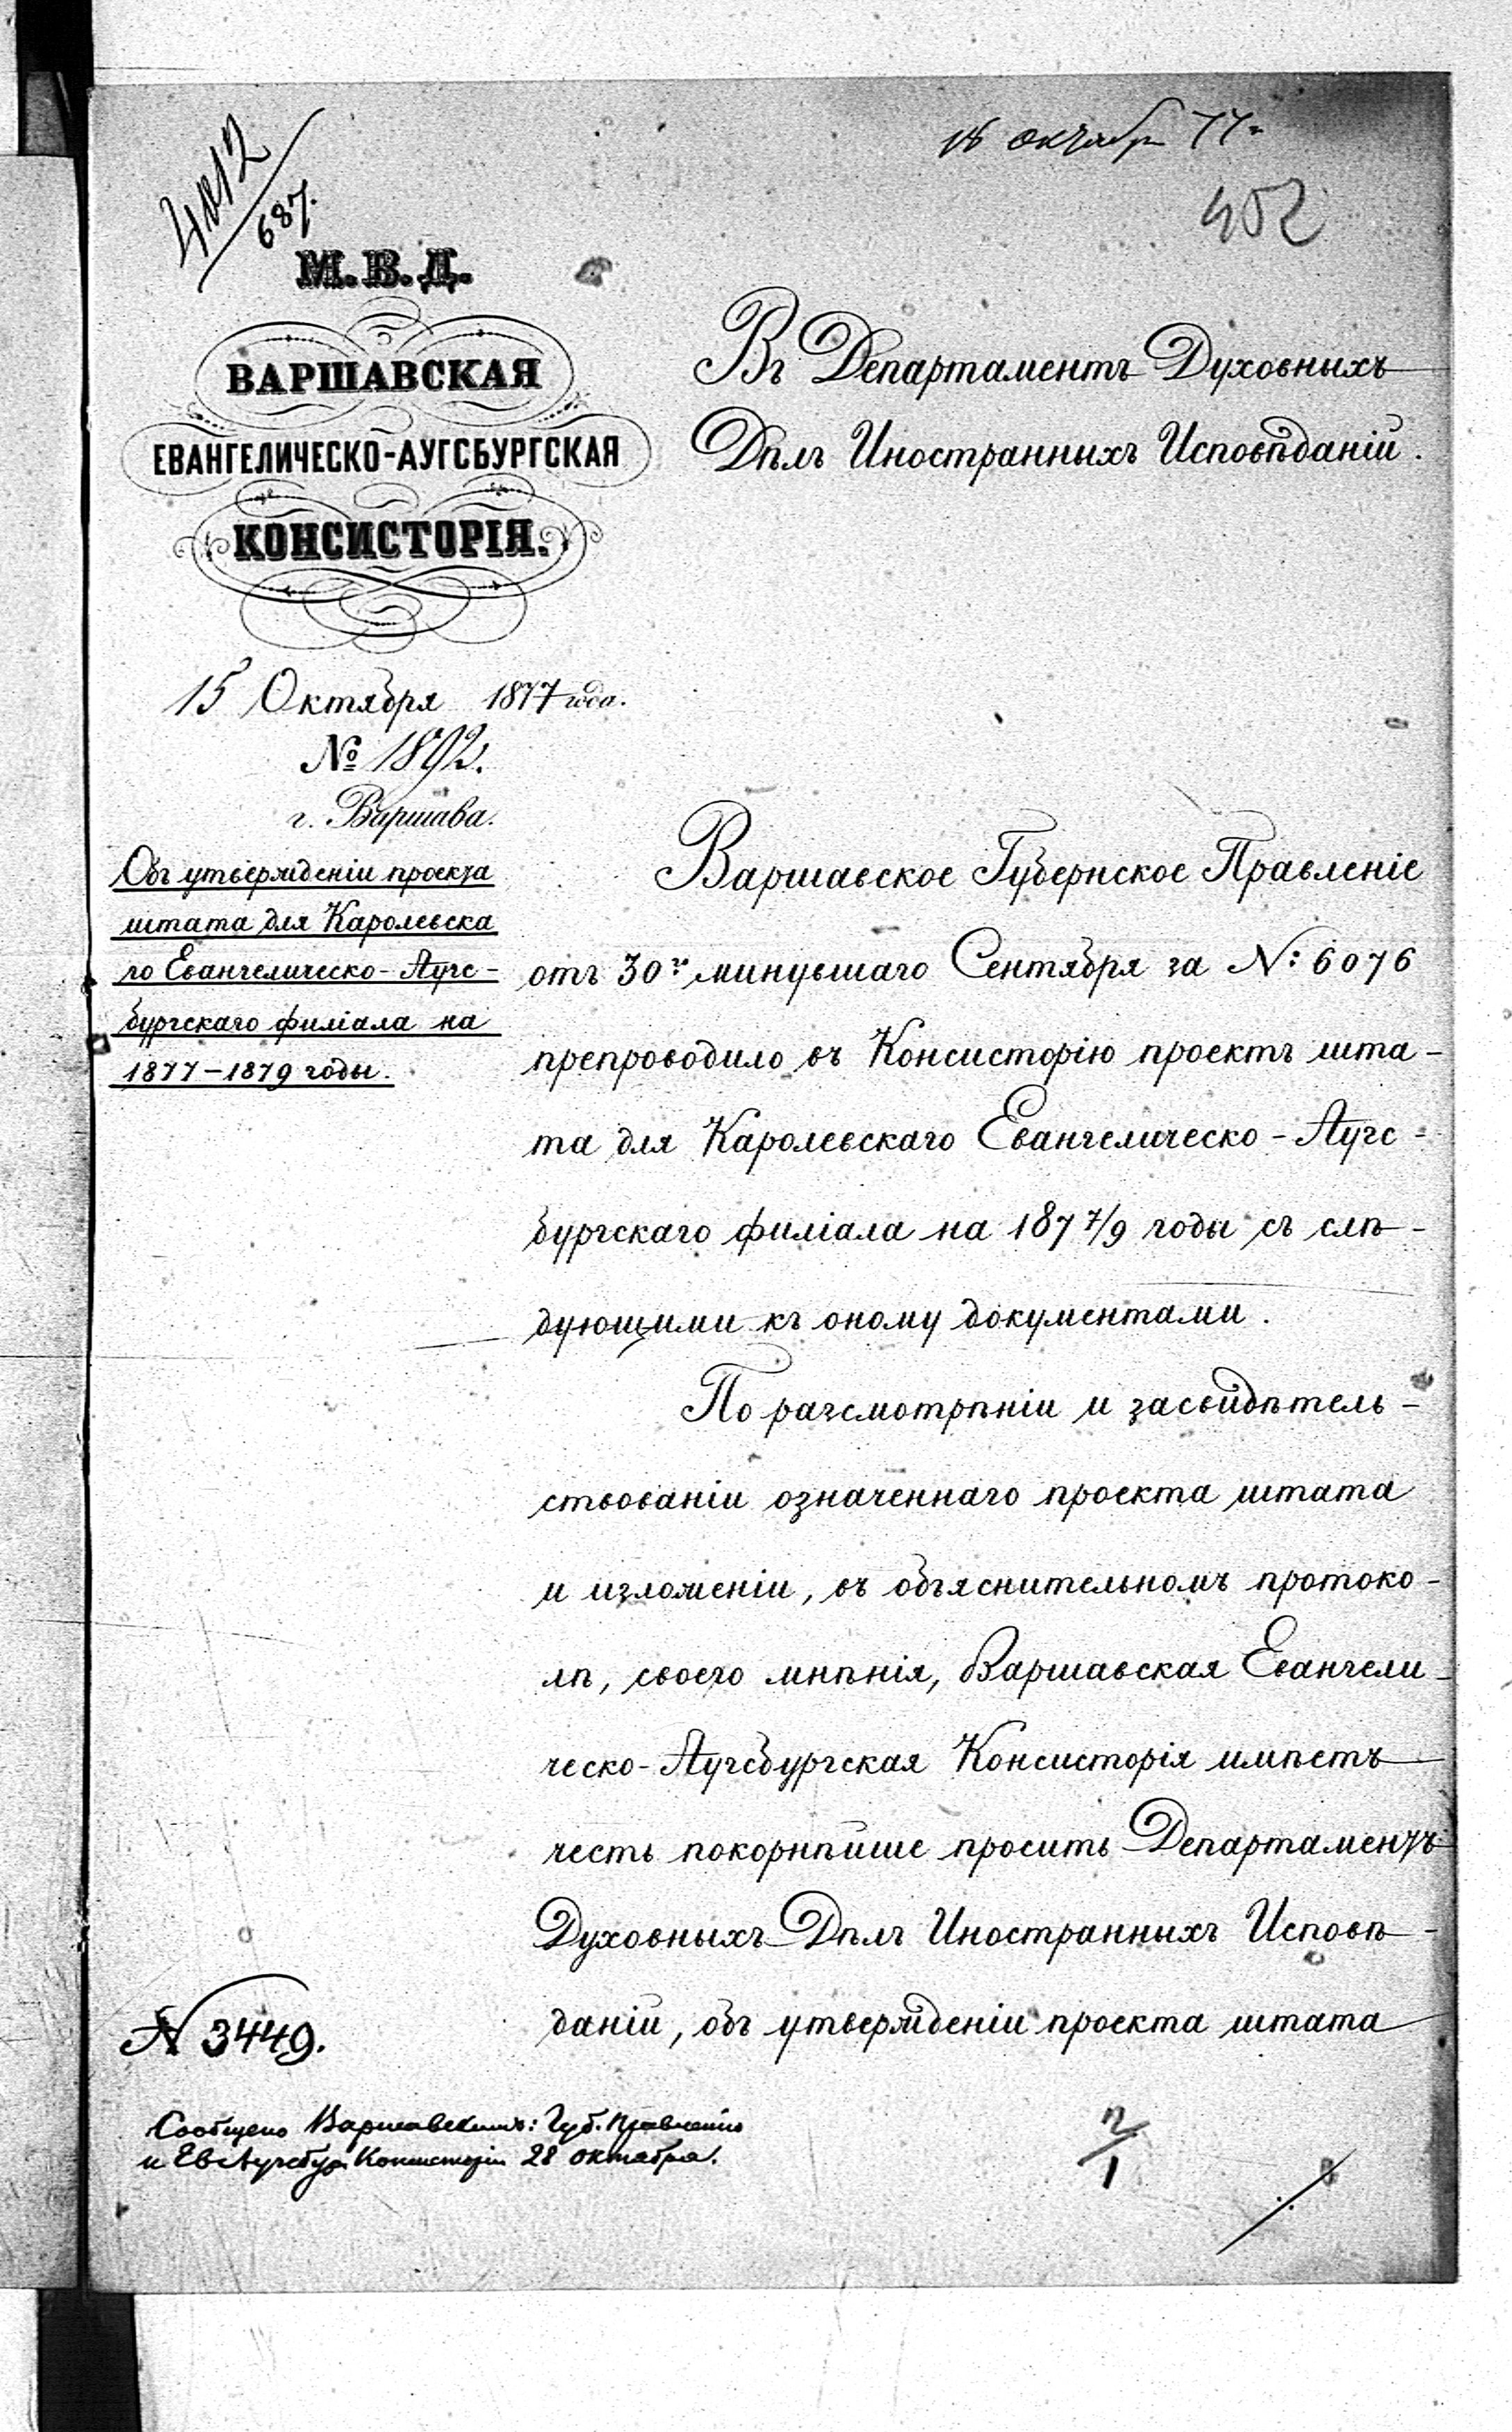 18 октября 77 г
4012/687.
452
М.В.Д.
ВАРШАВСКАЯ
ЕВАНГЕЛИЧЕСКО-АУГСБУРГСКАЯ
КОНСИСТОРІЯ.
15 Октября 1877 года.
№ 1892.
г. Варшава.
Объ утвержденіи проекта
штата для Каролевска
го Евангелическо-Аугс-
бургскаго филіала на
1877-1879 годы.
Въ Департаментъ Духовныхъ
Дѣлъ Иностранныхъ Исповѣданій.
Варшавское Губернское Правленіе
отъ 30го минувшаго Сентября за №: 6076
препроводило въ Консисторію проектъ шта-
та для Каролевскаго Евангелическо-Аугс-
бургскаго филіала на 187 7/9 годы съ слѣ-
дующими къ оному документами.
По разсмотрѣніи и засвидѣтель-
ствованіи означеннаго проекта штата
и изложеніи, въ объяснительномъ протоко-
лѣ, своего мнѣнія, Варшавская Евангели-
ческо-Аугсбургская Консисторія имѣетъ
честь покорнѣйше просить Департаментъ
Духовныхъ Дѣлъ Иностранныхъ Исповѣ-
даній, объ утвержденіи проекта штата
№ 3449.
Сообщено Варшавскимъ: Губ. Правленію
и Ев Аугсбург Консисторіи 28 октября.